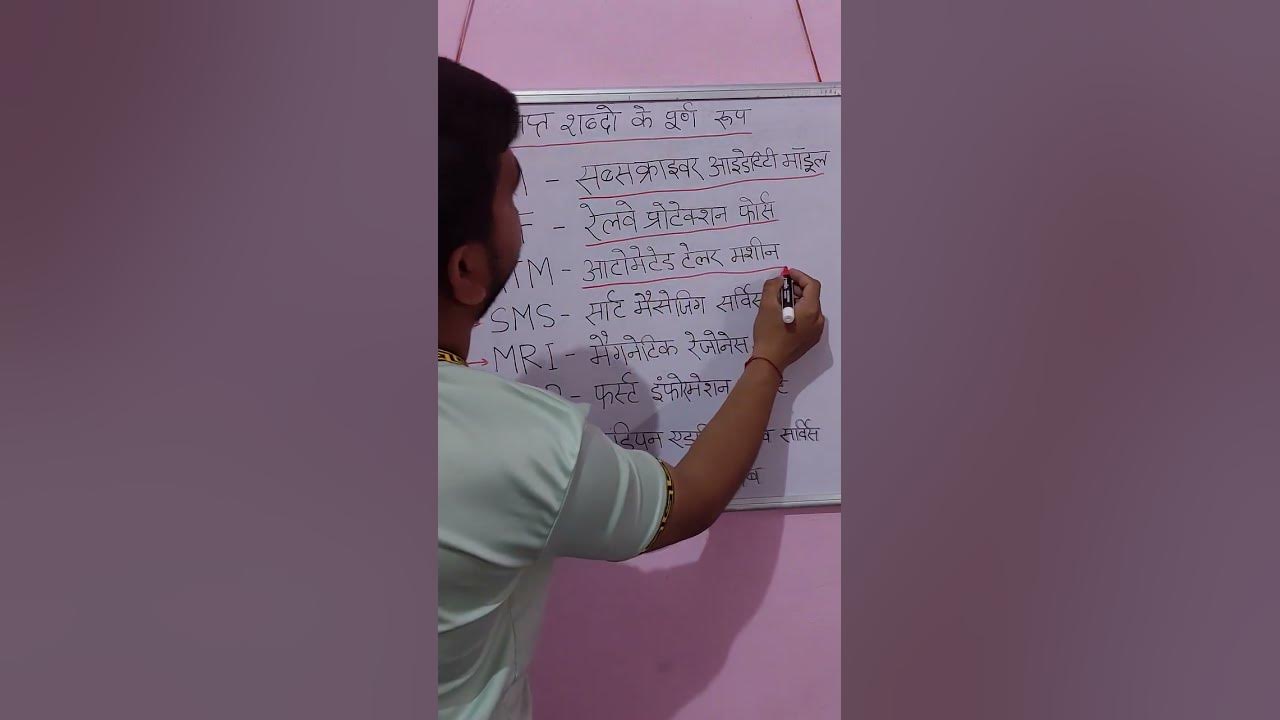 शब्दो के पूर्ण रूप
- सब्सक्राइवर आइडेन्टिटी मॉडूल
- रेलवे प्रोटेक्शन फोर्स
TM - आटोमेटेड टेलर मशीन
SMS - सार्ट मैसेजिग सर्विस
→ MRI - मैगनेटिक रेजोनेस
- फर्स्ट इंफोमेशन
डियन सर्विस